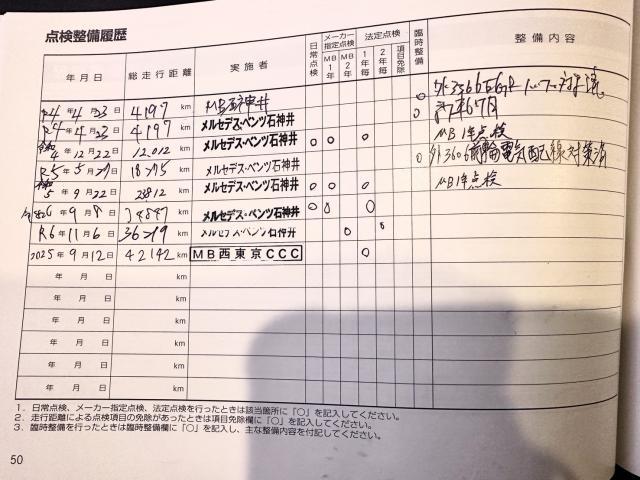 点検整備履歴
年月日 総走行距離 実施者 日常点検 メーカー指定点検 MB1年 MB2年 法定点検 1年毎 2年毎 項目免除 臨時整備 整備内容
R4年4月23日 4197km
R4年4月23日 4197km メルセデス・ベンツ石神井 ○
令和4年12月22日 12,012km メルセデス・ベンツ石神井 ○ ○ ○ MB1年点検
R5年5月29日 メルセデス・ベンツ石神井 ○ 前輪電気配線対策済
令和5年9月22日 メルセデス・ベンツ石神井 ○ ○ ○ MB1年点検
6年9月8日 34847km メルセデス・ベンツ石神井 ○ ○ ○
R6年11月6日 36719km メルセデス・ベンツ石神井 ○ ○
2025年9月12日 42142km MB西東京CCC ○
年 月 日 km
年 月 日 km
年 月 日 km
年 月 日 km
年 月 日 km
年 月 日 km
1．日常点検、メーカー指定点検、法定点検を行ったときは該当箇所に「○」を記入してください。
2．走行距離による点検項目の免除があったときは項目免除欄に「○」を記入してください。
3．臨時整備を行ったときは臨時整備欄に「○」を記入し、主な整備内容を付記してください。
50